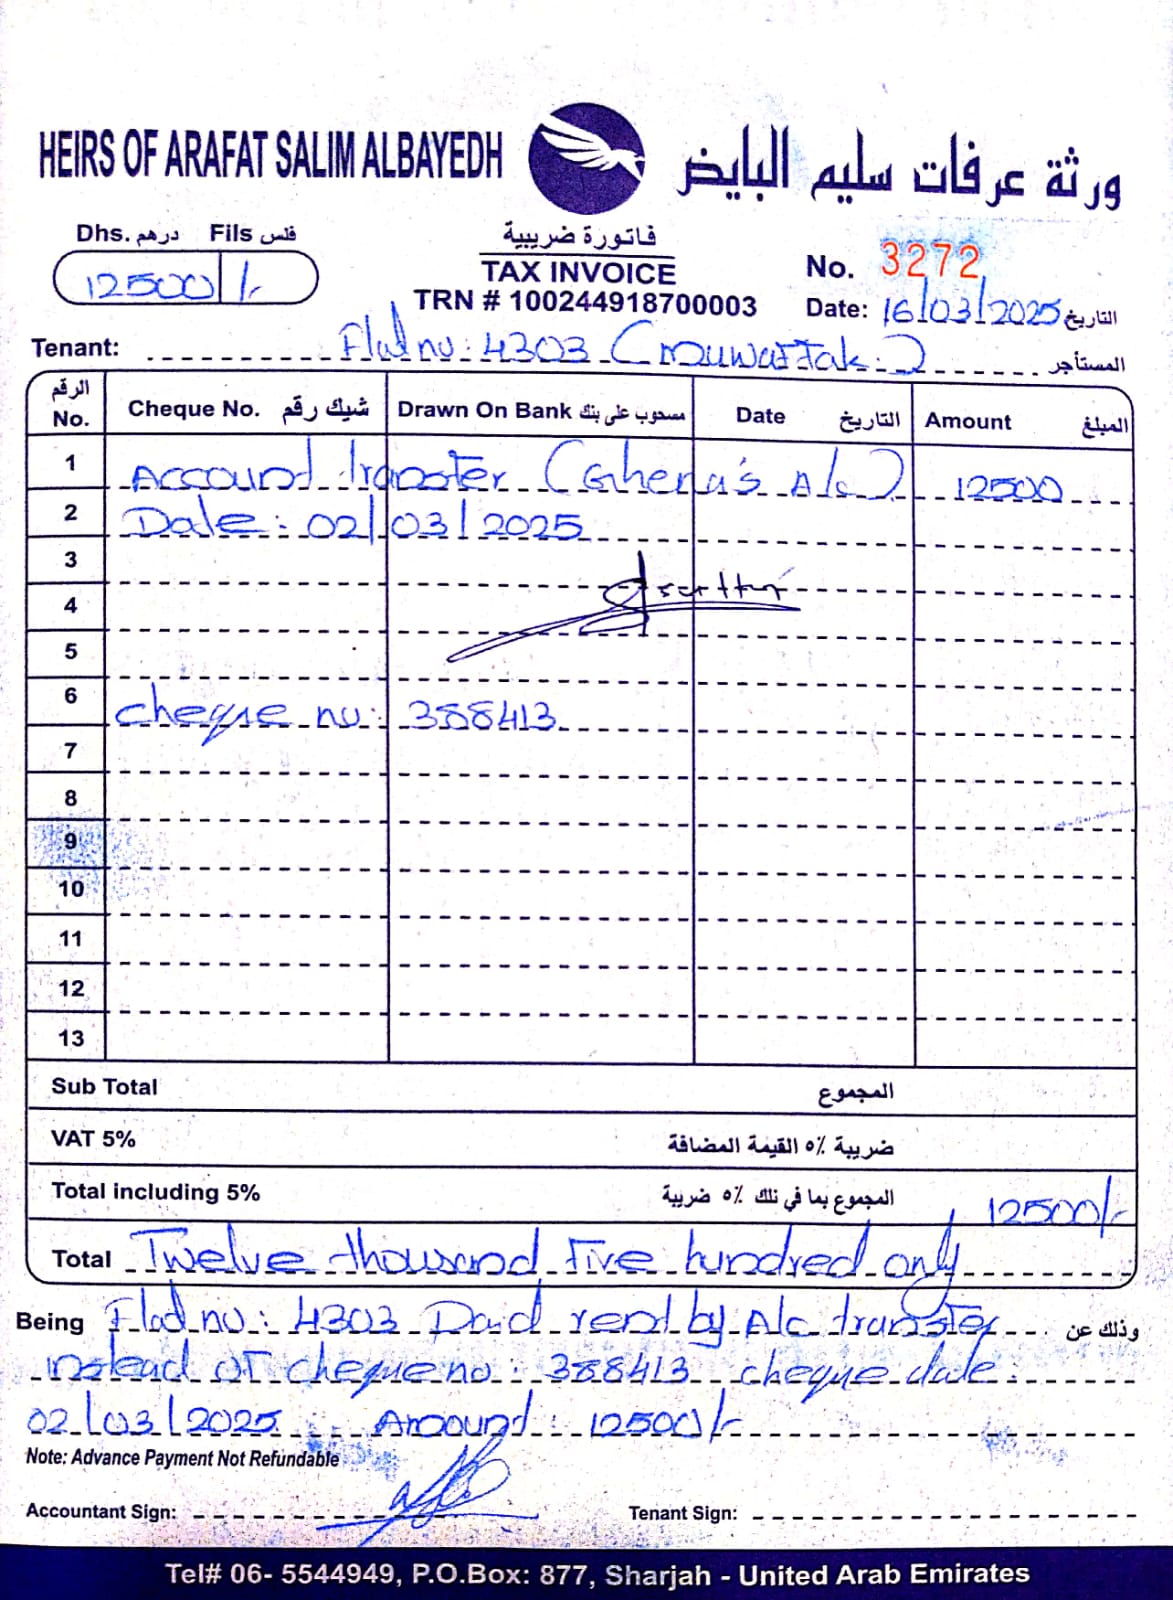 HEIRS OF ARAFAT SALIM ALBAYEDH
ورثة عرفات سليم البايض
Dhs. درهم Fils فلس
12500 /-
فاتورة ضريبية
TAX INVOICE
TRN # 100244918700003
No. 3272
Date: 16/03/2025 التاريخ
Tenant: Flat no: 4303 (Muwaffak) المستأجر
الرقم No. Cheque No. شيك رقم Drawn On Bank مسحوب على بنك Date التاريخ Amount المبلغ
1 Account transfer (Ghena's A/c) 12500
2 Date: 02/03/2025
3
4
5
6 cheque no: 388413
7
8
9
10
11
12
13
Sub Total المجموع
VAT 5% ضريبة ٥٪ القيمة المضافة
Total including 5% المجموع بما في ذلك ٥٪ ضريبة 12500/-
Total Twelve thousand Five hundred only
Being Flat no: 4303 Paid rent by A/c transfer وذلك عن
instead of cheque no: 388413 cheque date:
02/03/2025 Amount: 12500/-
Note: Advance Payment Not Refundable
Accountant Sign: Tenant Sign:
Tel# 06- 5544949, P.O.Box: 877, Sharjah - United Arab Emirates